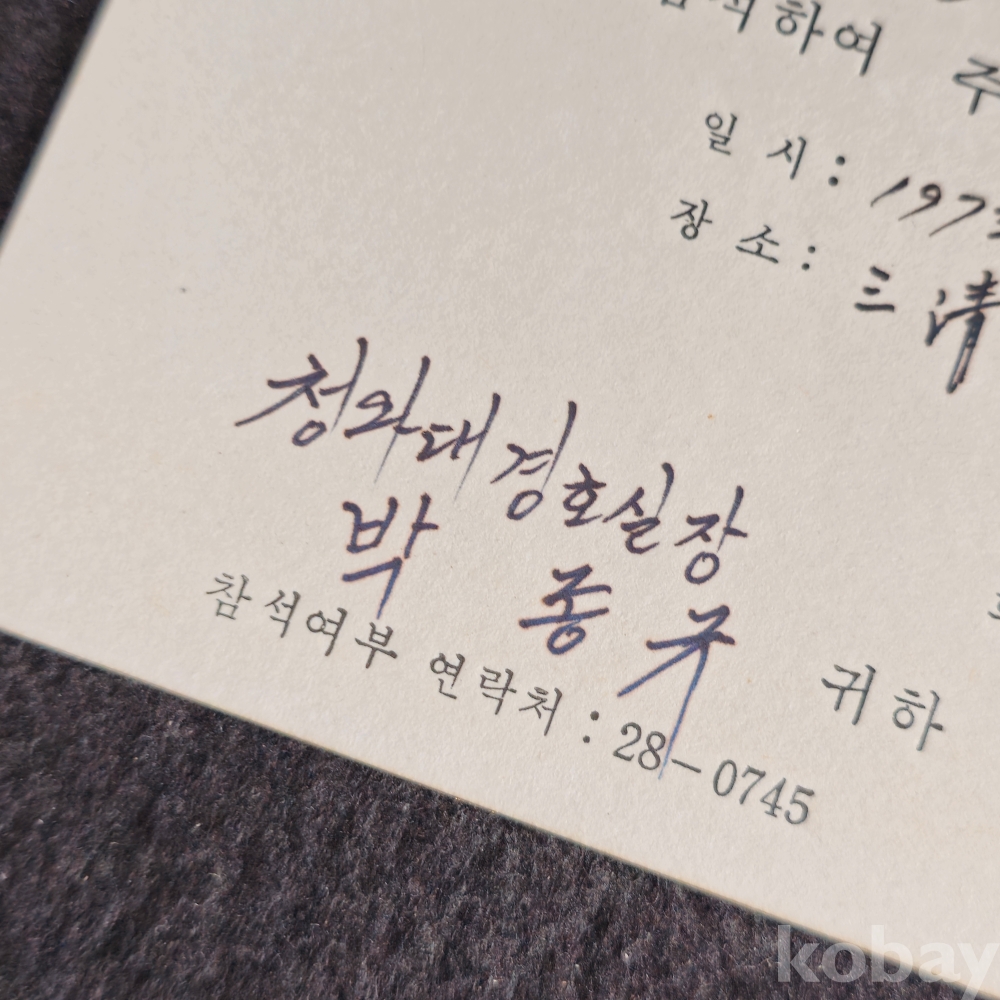 참석하여 주
일 시 : 197
장 소 : 三 淸
청와대 경호실장
박 종 규 귀하
참석여부 연락처 : 28-0745
kobay